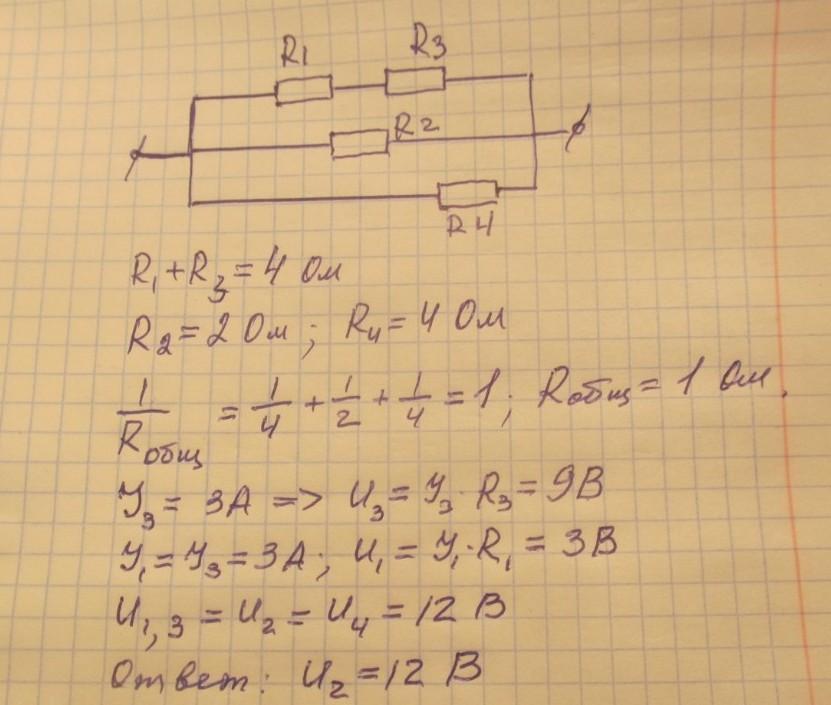 R1 R3
R2
R4
R₁ + R₃ = 4 Ом
R₂ = 2 Ом ; R₄ = 4 Ом
1/Rобщ = 1/4 + 1/2 + 1/4 = 1 ; Rобщ = 1 Ом.
У₃ = 3А => U₃ = У₃ · R₃ = 9В
У₁ = У₃ = 3А ; U₁ = У₁ · R₁ = 3В
U₁,₃ = U₂ = U₄ = 12 В
Ответ: U₂ = 12 В